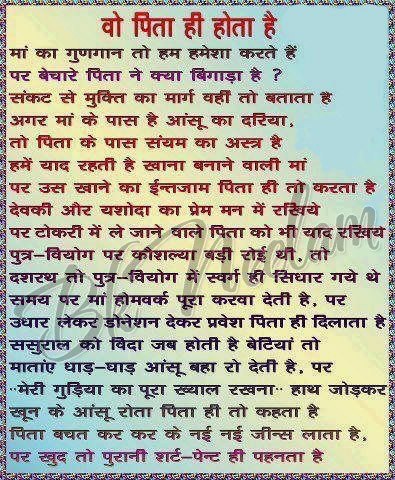 वो पिता ही होता है
मां का गुणगान तो हम हमेशा करते हैं
पर बेचारे पिता ने क्या बिगाड़ा है ?
संकट से मुक्ति का मार्ग वहीं तो बताता है
अगर मां के पास है आंसू का दरिया,
तो पिता के पास संयम का अस्त्र है
हमें याद रहती है खाना बनाने वाली मां
पर उस खाने का ईन्तजाम पिता ही तो करता है
देवकी और यशोदा का प्रेम मन में रखिये
पर टोकरी में ले जाने वाले पिता को भी याद रखिये
पुत्र-वियोग पर कौशल्या बड़ी रोई थी, तो
दशरथ तो पुत्र-वियोग में स्वर्ग ही सिधार गये थे
समय पर मां होमवर्क पूरा करवा देती है, पर
उधार लेकर डोनेशन देकर प्रवेश पिता ही दिलाता है
ससुराल को विदा जब होती है बेटियां तो
माताएं धाड़-धाड़ आंसू बहा रो देती है, पर
"मेरी गुड़िया का पूरा ख्याल रखना" हाथ जोड़कर
खून के आंसू रोता पिता ही तो कहता है
पिता बचत कर कर के नई नई जीन्स लाता है,
पर खुद तो पुरानी शर्ट-पेन्ट ही पहनता है
Bk Neelam